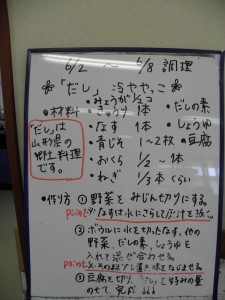 6/2 〜 6/8 調理
※「だし」冷ややっこ※
・材料
・みょうが 1/2コ
・きゅうり 1本
・なす 1本
・青じそ 1〜2枚
・おくら 1/2〜1本
・ねぎ 1/3本くらい
・だしの素
・しょうゆ
・豆腐
「だし」は
山形県の
郷土料理
です。
・作り方 ①野菜をみじん切りにする。
point ※なすは水にさらして戸汁を抜く。
②ボウルに水を切ったなす、他の
野菜、だしの素、しょうゆを
入れて混ぜ合わせる。
point
③豆腐を切り、「だし」を好みの量
のせて、完成